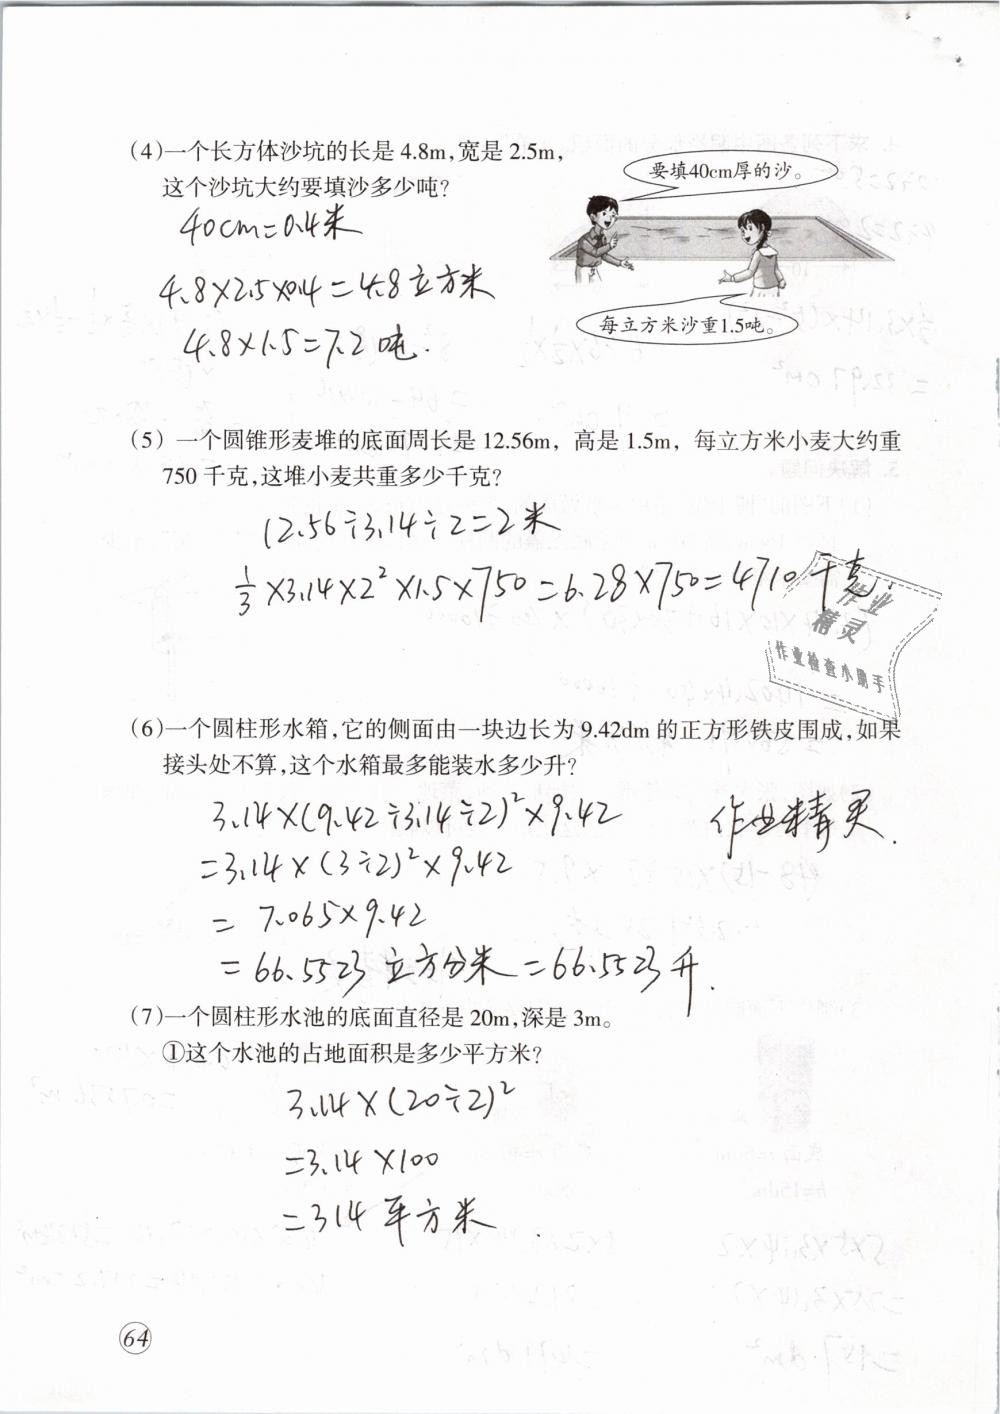 (4)一个长方体沙坑的长是 4.8m,宽是 2.5m,
这个沙坑大约要填沙多少吨?
要填40cm厚的沙。
每立方米沙重1.5吨。
40cm=0.4米
4.8×2.5×0.4=4.8立方米
4.8×1.5=7.2吨.
(5) 一个圆锥形麦堆的底面周长是 12.56m, 高是 1.5m, 每立方米小麦大约重
750 千克,这堆小麦共重多少千克?
12.56÷3.14÷2=2米
1/3×3.14×2²×1.5×750=6.28×750=4710千克
作业
精灵
作业检查小助手
(6)一个圆柱形水箱,它的侧面由一块边长为 9.42dm 的正方形铁皮围成,如果
接头处不算,这个水箱最多能装水多少升?
3.14×(9.42÷3.14÷2)²×9.42
作业精灵.
=3.14×(3÷2)²×9.42
=7.065×9.42
=66.5523立方分米=66.5523升.
(7)一个圆柱形水池的底面直径是 20m,深是 3m。
①这个水池的占地面积是多少平方米?
3.14×(20÷2)²
=3.14×100
=314平方米
64